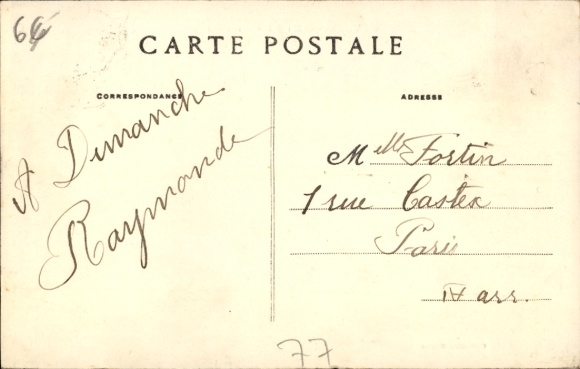 66
CARTE POSTALE
CORRESPONDANCE
ADRESSE
A Dimanche
Raymonde
Melle Fortin
1 rue Castex
Paris
IV arr.
77